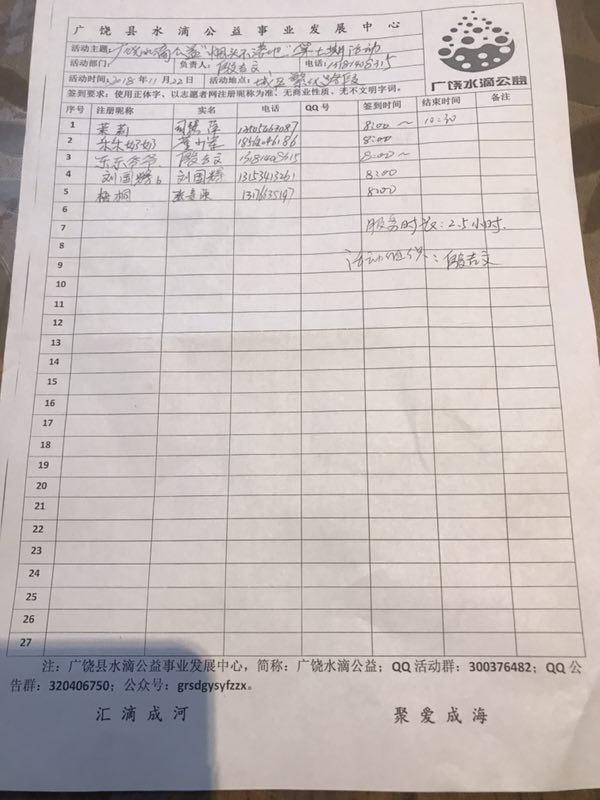 广饶县水滴公益事业发展中心
广饶水滴公益
活动主题：广饶水滴公益"烟头不落地"第七期活动
活动部门： 负责人：殷吉文 电话：
活动时间：2018年11月22日 活动地点：城区繁华路段
签到要求：使用正体字、以志愿者网注册昵称为准、无商业性质、无不文明字词。
序号 注册昵称 实名 电话 QQ号 签到时间 结束时间 备注
1 茉莉 8:00~ 10:30
2 乐乐奶奶 8:00
3 东东爷爷 殷吉文 8:00~
4 刘国胜 刘国胜 13153413261 8:00
5 梧桐 8:00
6
7 服务时长：2.5小时.
8
9 殷吉文
10
11
12
13
14
15
16
17
18
19
20
21
22
23
24
25
26
27
注：广饶县水滴公益事业发展中心，简称：广饶水滴公益；QQ活动群：300376482；QQ公
告群：320406750；公众号：grsdgysyfzzx。
汇滴成河 聚爱成海